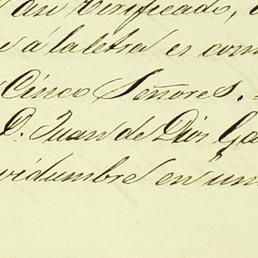 un Certificado,
á la letra es com
Cinco Señores. =
D. Juan de Dios Ga
vidumbre en un